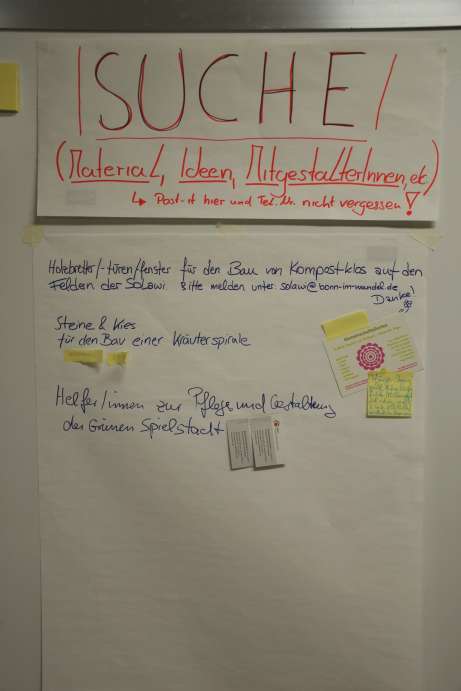 SUCHE
(Material, Ideen, MitgestalterInnen, etc)
↳ Post-it hier und Tel. Nr. nicht vergessen!
Holzbretter/-türen/fenster für den Bau von Kompost-klos auf den
Feldern der SoLaWi. Bitte melden unter: solawi@bonn-im-wandel.de
Danke!
Steine & Kies
für den Bau einer Kräuterspirale
Helfer/innen zur Pflege und Gestaltung
der Grünen Spielstadt